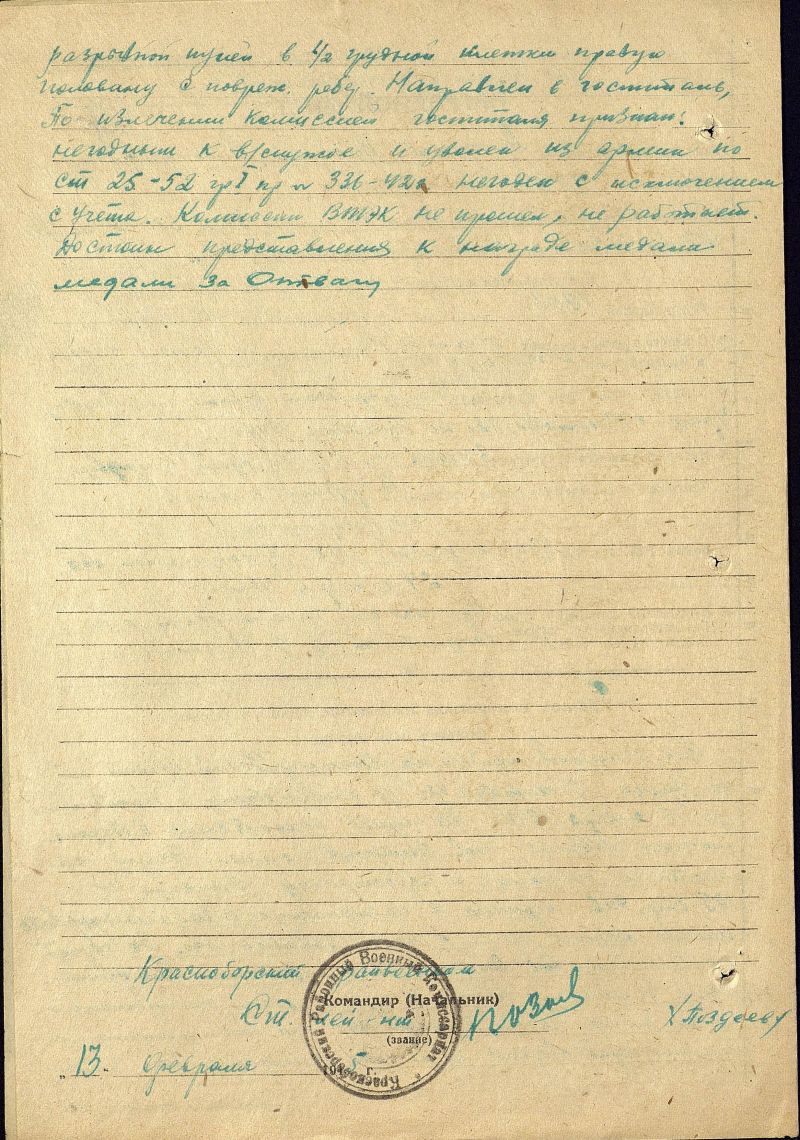 разрывной пулей в 1/2 грудной клетки правую
половину с повреж. ребер. Направлен в госпиталь,
По излечении комиссией госпиталя признан:
негодным к в/службе и уволен из армии по
ст 25-52 гр I пр 336-42г негоден с исключением
с учета. Комиссии ВТЭК не прошел, не работает.
Достоин представления к награде медали
медали за Отвагу
Красноборский Райвоенком
Командир (Начальник)
Ст. лей нт
(звание)
"13. февраля 194 5 г.
Красноборский Районный Военный Комиссариат